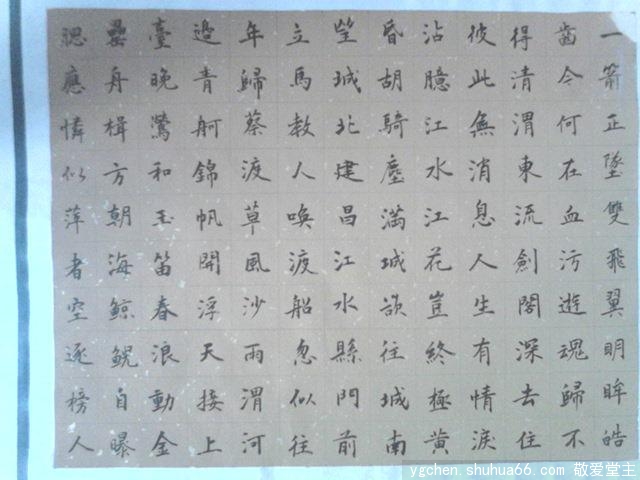 一箭正墜雙飛翼明眸皓
齒今何在血污遊魂歸不
得清渭東流劍閣深去住
彼此無消息人生有情淚
沾臆江水江花豈終極黃
昏胡騎塵滿城欲往城南
望城北建昌江水縣門前
立馬教人喚渡船忽似往
年歸蔡渡草風沙雨渭河
邊青舸錦帆開浮天接上
臺晚鶯和玉笛春浪動金
罍舟楫方朝海鯨鯢自曝
腮應憐似萍者空逐榜人
ygchen.shuhua66.com 敬爱堂主